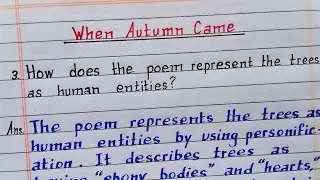 When Autumn Came
3. How does the poem represent the trees
as human entities?
Ans. The poem represents the trees as
human entities by using personific-
ation. It describes trees as
"ebony bodies" and "hearts,"